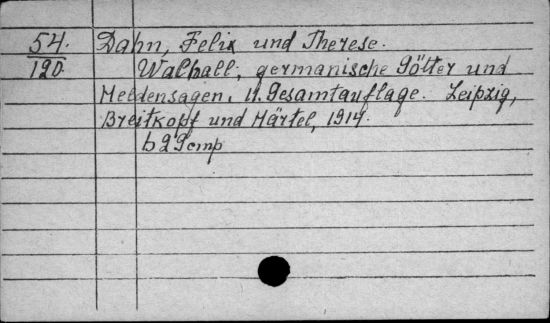 54. Dahn, Felix und Therese.
120. Walhall; germanische Götter und
Heldensagen. 11. Gesamtauflage. Leipzig,
Breitkopf und Härtel, 1914.